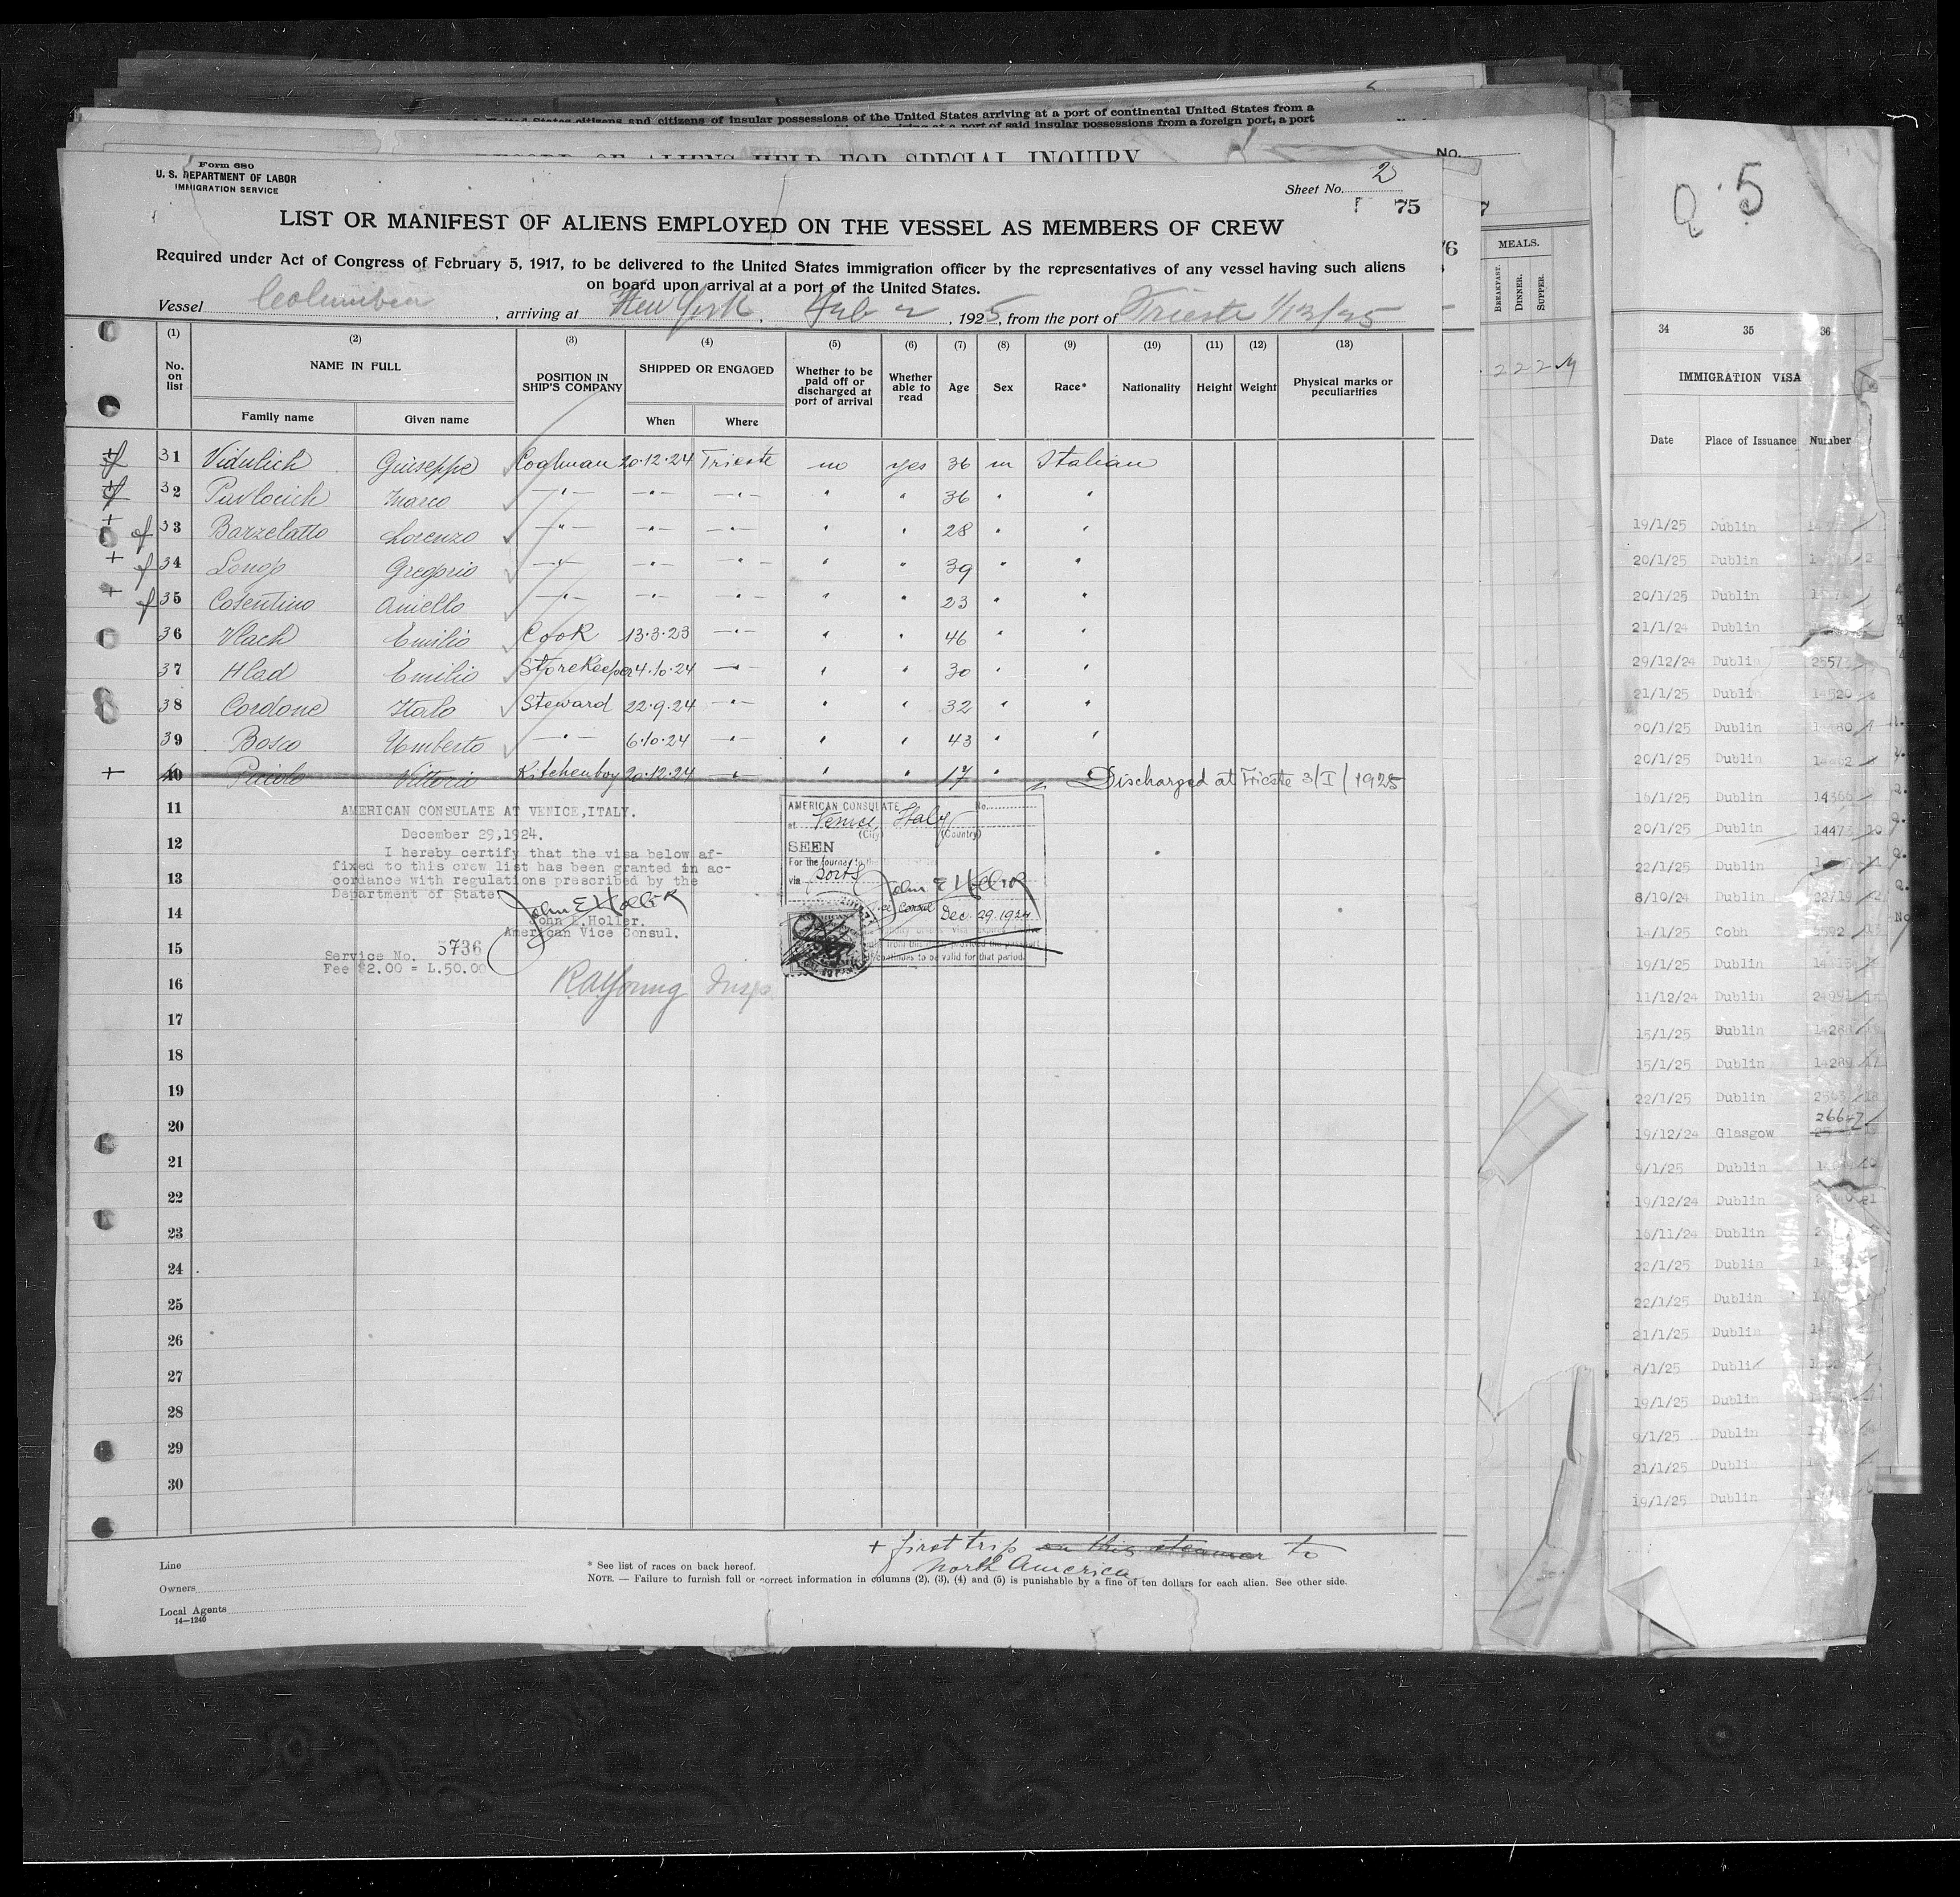 United States citizens and citizens of insular possessions of the United States arriving at a port of continental United States from a
arriving at a port of said insular possessions from a foreign port, a port
RECORD OF ALIENS HELD FOR SPECIAL INQUIRY
No.
Form 680
U. S. DEPARTMENT OF LABOR
IMMIGRATION SERVICE
Sheet No. 2
75
LIST OR MANIFEST OF ALIENS EMPLOYED ON THE VESSEL AS MEMBERS OF CREW
Required under Act of Congress of February 5, 1917, to be delivered to the United States immigration officer by the representatives of any vessel having such aliens
on board upon arrival at a port of the United States.
Vessel Columbia, arriving at New York, Feb 2, 1925, from the port of Trieste 1/13/25
(1) (2) (3) (4) (5) (6) (7) (8) (9) (10) (11) (12) (13)
No. on list NAME IN FULL POSITION IN SHIP'S COMPANY SHIPPED OR ENGAGED Whether to be paid off or discharged at port of arrival Whether able to read Age Sex Race* Nationality Height Weight Physical marks or peculiarities
Family name Given name When Where
+ 31 Vidulich Giuseppe Coalman 20·12·24 Trieste no yes 36 m Italian
+ 32 Pavlovich Marco -"- -"- -"- " " 36 " "
+ 33 Barzelatto Lorenzo -"- -"- -"- " " 28 " "
+ 34 Longo Gregorio -"- -"- -"- " " 39 " "
+ 35 Cosentino Aniello -"- -"- -"- " " 23 " "
36 Vlach Emilio Cook 13·3·23 -"- " " 46 " "
37 Hlad Emilio Storekeeper 4·10·24 -"- " " 30 " "
38 Cordone Italo Steward 22·9·24 -"- " " 32 " "
39 Bosco Umberto -"- 6·10·24 -"- " " 43 " "
+ 40 Vittorio Kitchenboy 20·12·24 -"- " " 17 " " Discharged at Trieste 3/I/1925
11
12
13
14
15
16
17
18
19
20
21
22
23
24
25
26
27
28
29
30
AMERICAN CONSULATE AT VENICE, ITALY.
December 29, 1924.
I hereby certify that the visa below af-
fixed to this crew list has been granted in ac-
cordance with regulations prescribed by the
Department of State.
John E Holler
John E. Holler.
American Vice Consul.
Service No. 3736
Fee $2.00 = L.50.00
RA Young Insp.
AMERICAN CONSULATE No.
at Venice, Italy
(City) (Country)
SEEN
For the journey to the
via ports
John E Holler
Vice Consul
Dec. 29, 1924
continues to be valid for that period.
+ first trip on this steamer to
North America
Line
Owners
Local Agents
14—1240
* See list of races on back hereof.
NOTE. — Failure to furnish full or correct information in columns (2), (3), (4) and (5) is punishable by a fine of ten dollars for each alien. See other side.
76
MEALS.
BREAKFAST.
DINNER.
SUPPER.
222
5
34 35 36
IMMIGRATION VISA
Date Place of Issuance Number
19/1/25 Dublin
20/1/25 Dublin
20/1/25 Dublin
21/1/24 Dublin
29/12/24 Dublin
21/1/25 Dublin 14520
20/1/25 Dublin
20/1/25 Dublin
16/1/25 Dublin 14366
20/1/25 Dublin 14473 10
22/1/25 Dublin
8/10/24 Dublin
14/1/25 Cobh
19/1/25 Dublin
11/12/24 Dublin
15/1/25 Dublin
15/1/25 Dublin 14289
22/1/25 Dublin
26647
19/12/24 Glasgow
9/1/25 Dublin
19/12/24 Dublin
16/11/24 Dublin
22/1/25 Dublin
22/1/25 Dublin
21/1/25 Dublin
8/1/25 Dublin
19/1/25 Dublin
9/1/25 Dublin
21/1/25 Dublin
19/1/25 Dublin